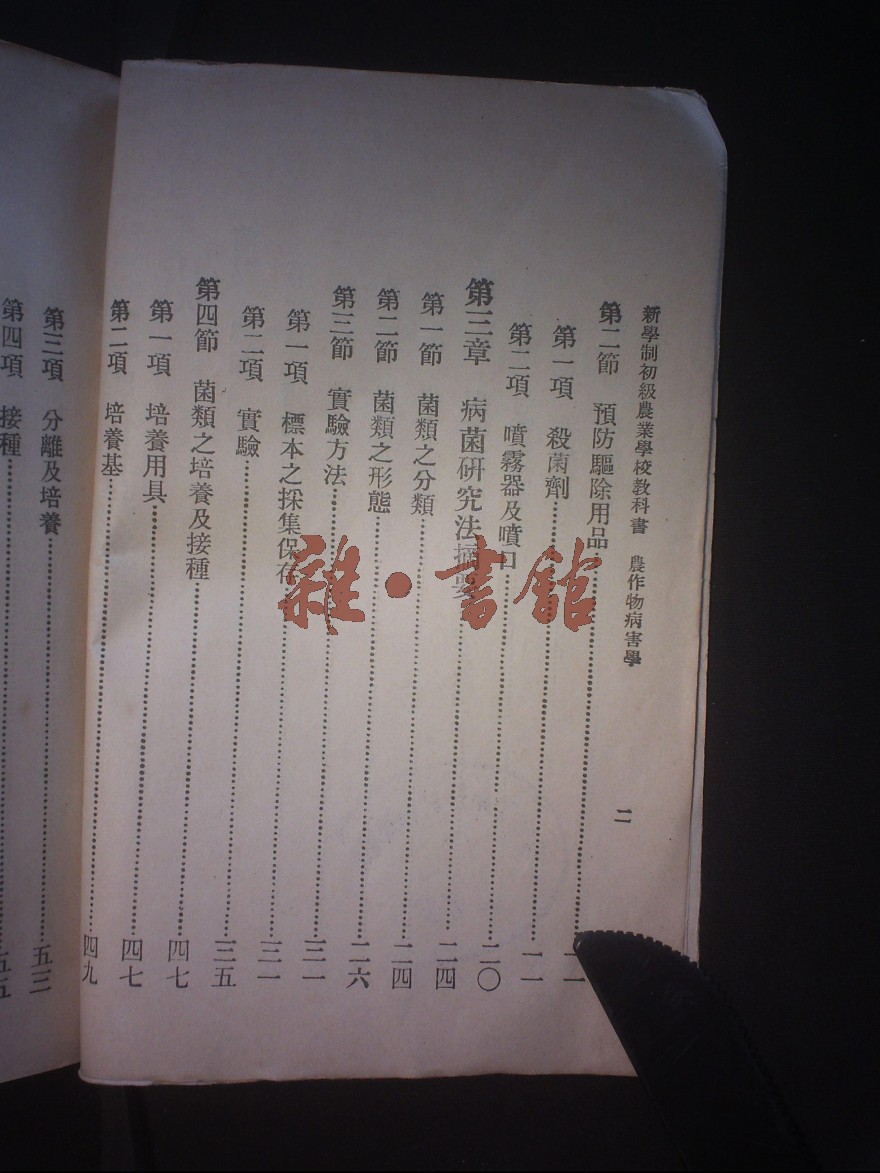 新學制初級農業學校教科書　農作物病害學　二
第二節　預防驅除用品……一一
第一項　殺菌劑……一一
第二項　噴霧器及噴口……二〇
第三章　病菌研究法摘要……二四
第一節　菌類之分類……二四
第二節　菌類之形態……二六
第三節　實驗方法……三一
第一項　標本之採集保存……三一
第二項　實驗……三五
第四節　菌類之培養及接種……四七
第一項　培養用具……四七
第二項　培養基……四九
第三項　分離及培養……五三
第四項　接種……五五
雜·書館